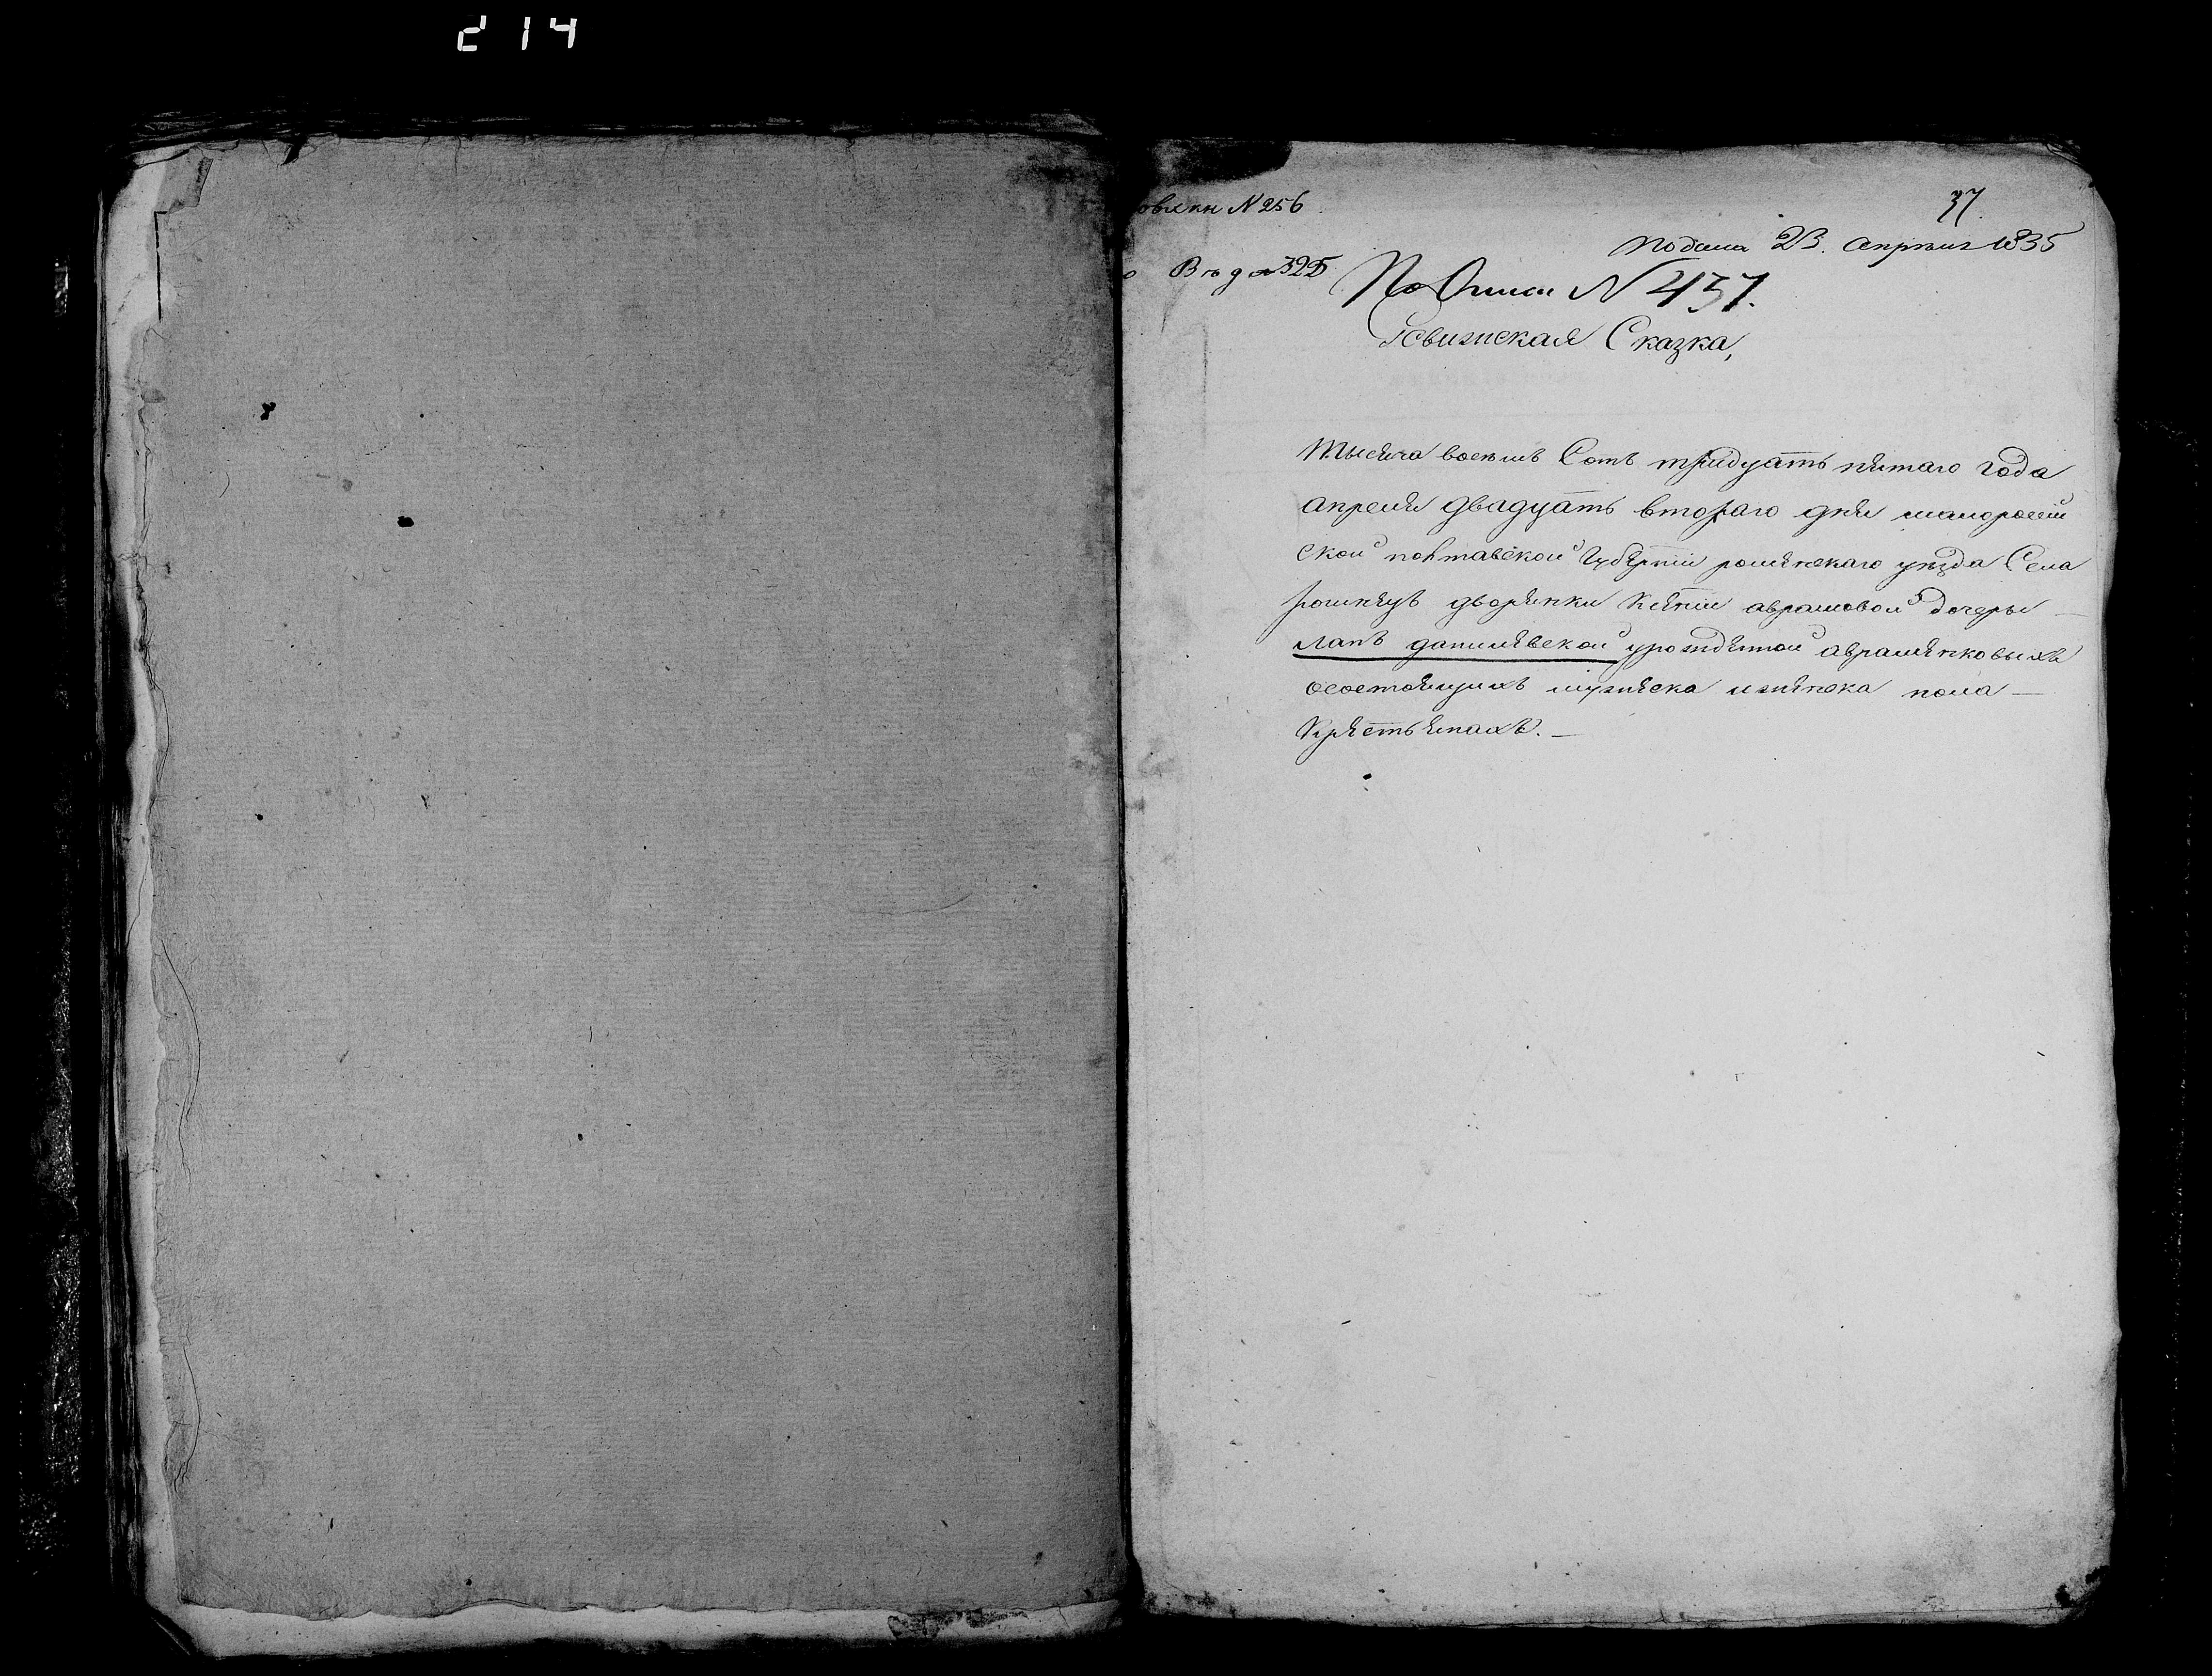 214
37
N 256
подана 23 апреля 1835
По Описи N 437.
Ревижская Сказка,
Тысяча восемь Сотъ тридцать пятаго года
апреля двадцать втораго дня малоросій
ской полтавской Губерніи роменскаго уезда Села
дворянки Ксеніи аврамовой дочеры
данилевской урожденной авраменковыхъ
осостоящихъ мужеска иженска пола
Крестьянахъ.